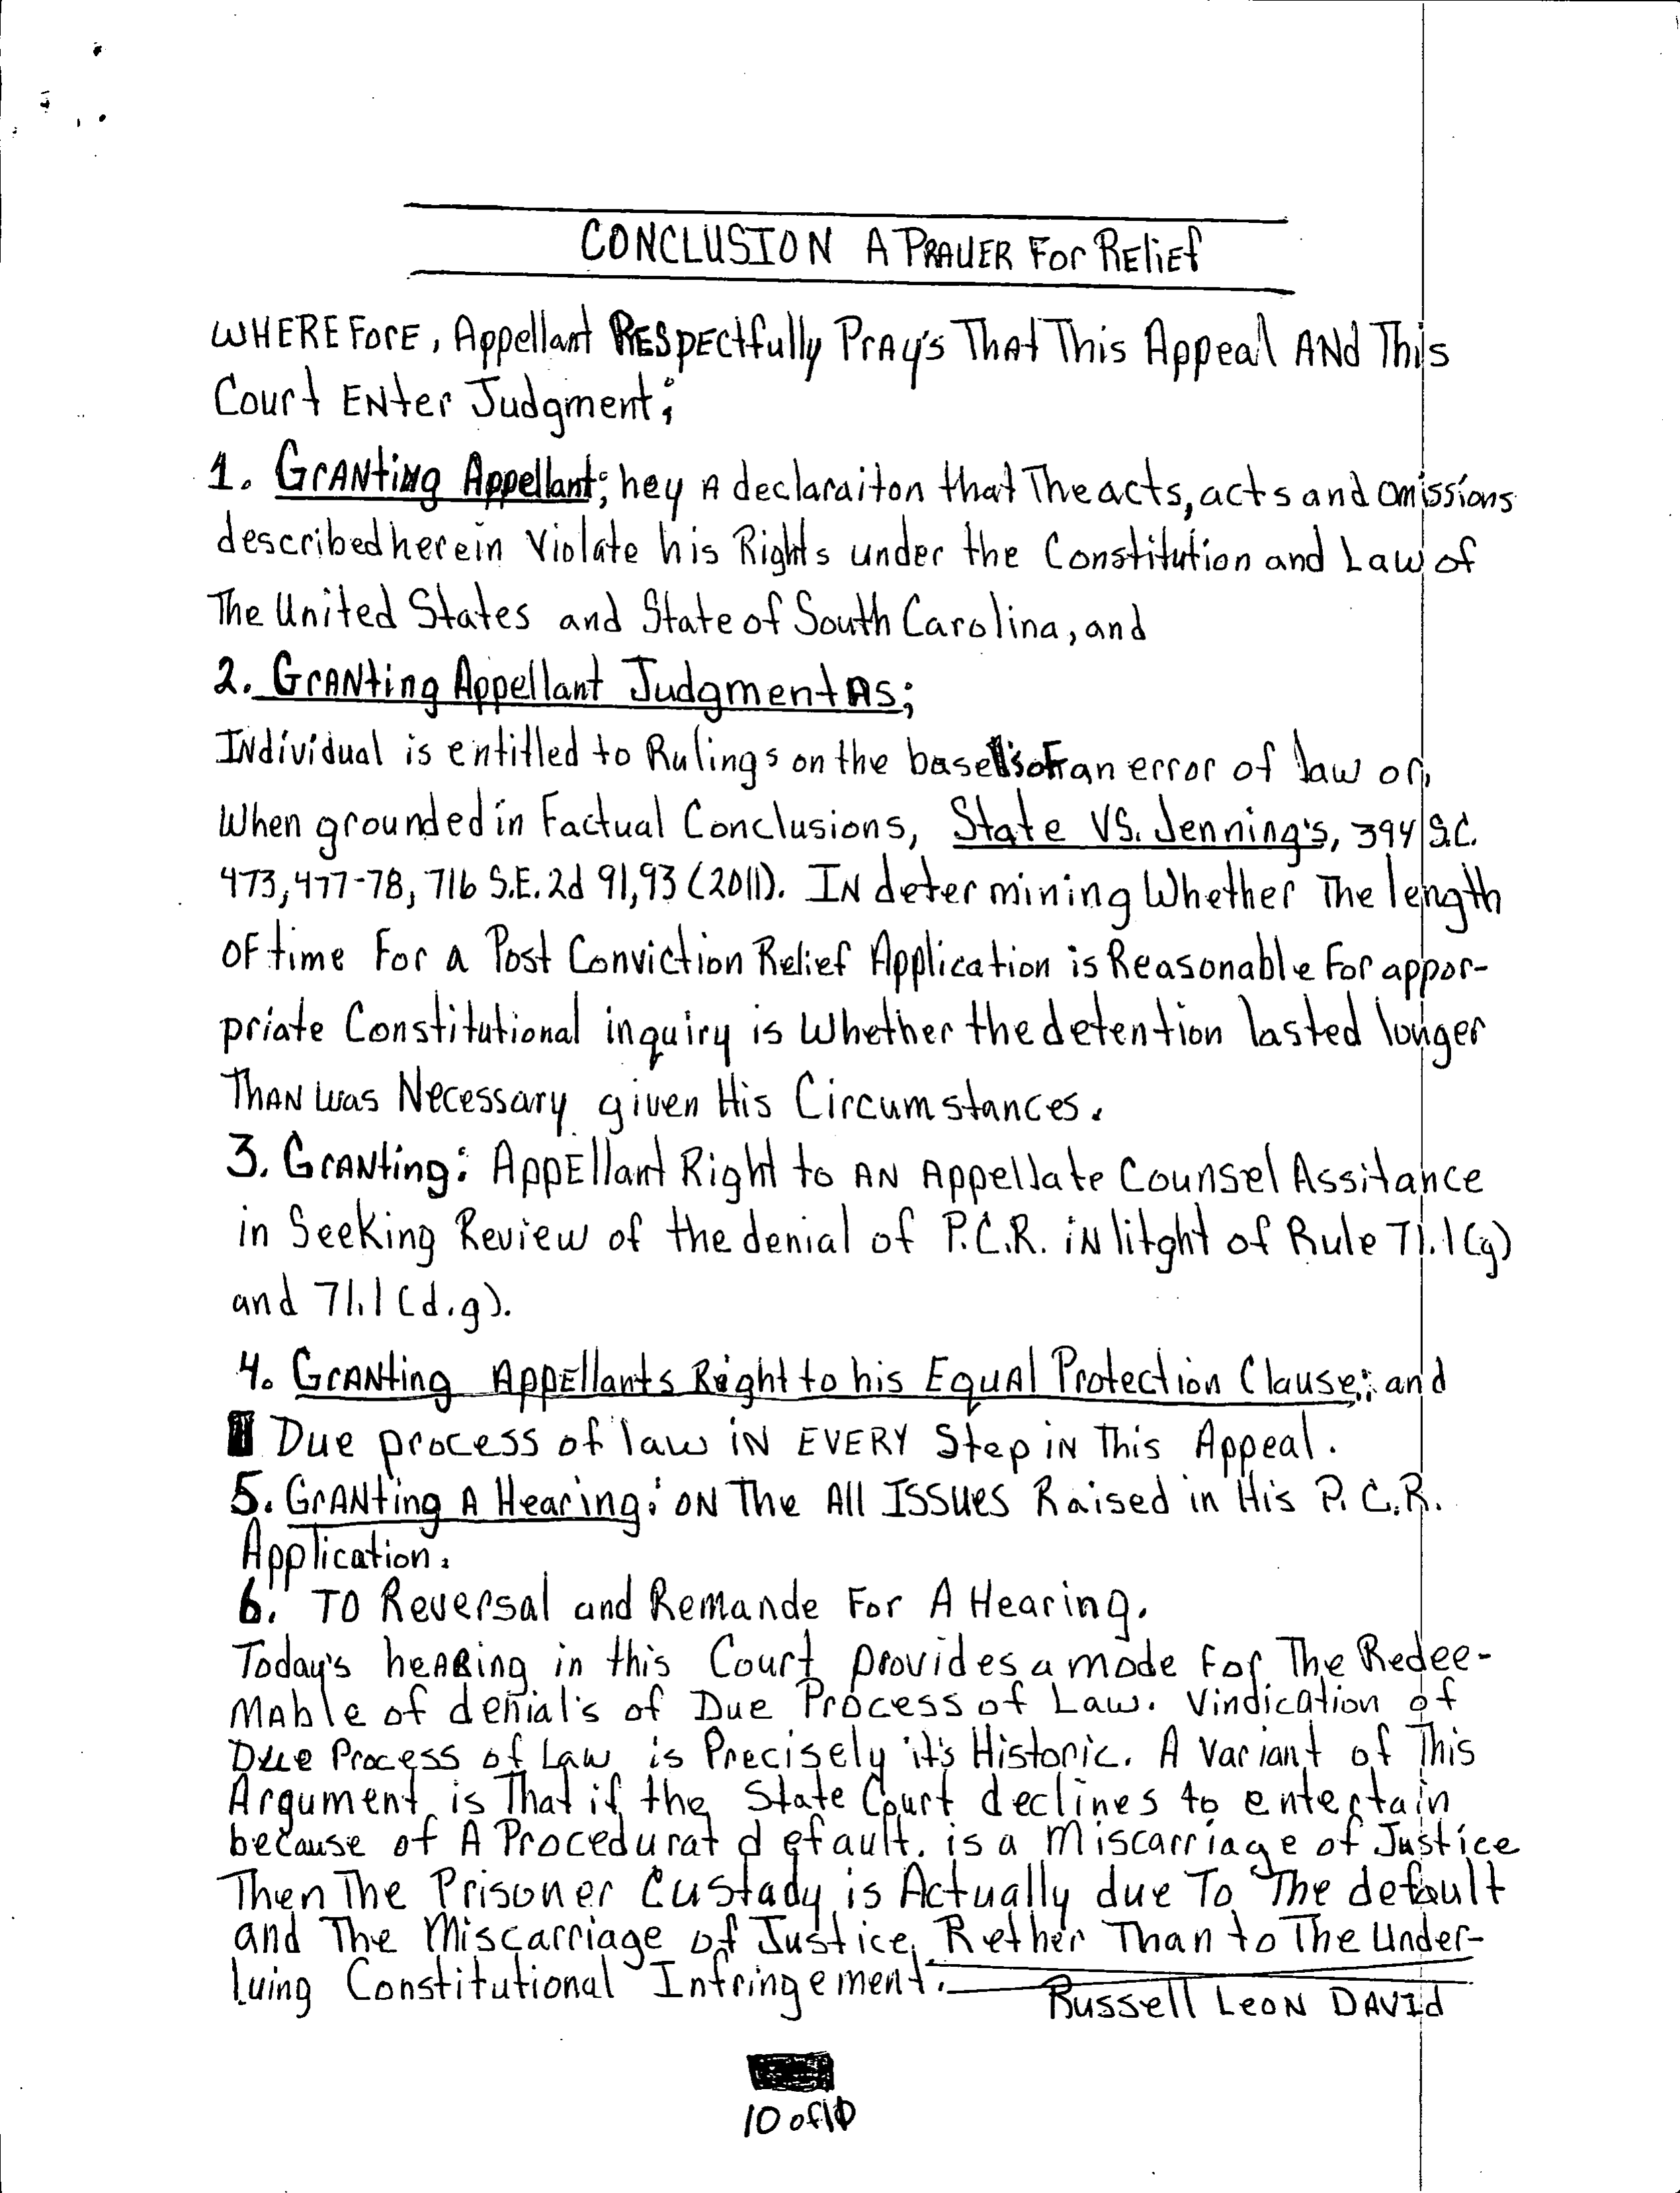 CONCLUSION A PRAUER For RELiEf
WHEREForE, Appellant RESpECtfully PrAy's THAt This Appeal ANd This
Court ENter Judgment;
1. GrANtiNg Appellant; hey A declaraiton that The acts, acts and omissions
described herein Violate his Rights under the Constitution and Law of
The United States and State of South Carolina, and
2. GrANting Appellant Judgment AS;
INdividual is entitled to Rulings on the an error of law or,
When grounded in Factual Conclusions, State VS. Jenning's, 394 S.C.
473, 477-78, 716 S.E. 2d 91, 93 (2011). IN determining Whether The length
OF time For a Post Conviction Relief Application is Reasonable For appor-
priate Constitutional inquiry is Whether the detention lasted longer
THAN was Necessary given His Circumstances.
3. GrANting: AppEllant Right to AN Appellate Counsel Assitance
in Seeking Review of the denial of P.C.R. iN litght of Rule 71.1(g)
and 71.1(d.g).
4. GrANting AppEllants Right to his EquAl Protection Clause; and
Due process of law iN EVERY Step iN This Appeal.
5. GrANting A Hearing: ON The All ISSUES Raised in His P.C.R.
Application.
6. TO Reversal and Remande For A Hearing.
Today's heARing in this Court provides a mode For The Redee-
MAble of denial's of Due Process of Law. Vindication of
Due Process of Law is Precisely it's Historic. A variant of This
Argument is That if the State Court declines to entertain
because of A Procedurat default. is a Miscarriage of Justice
Then The Prisoner Custady is Actually due To The default
and The Miscarriage of Justice, Rether Than to The Under-
luing Constitutional Infringement.
Russell LeoN DAVId
10 of 10